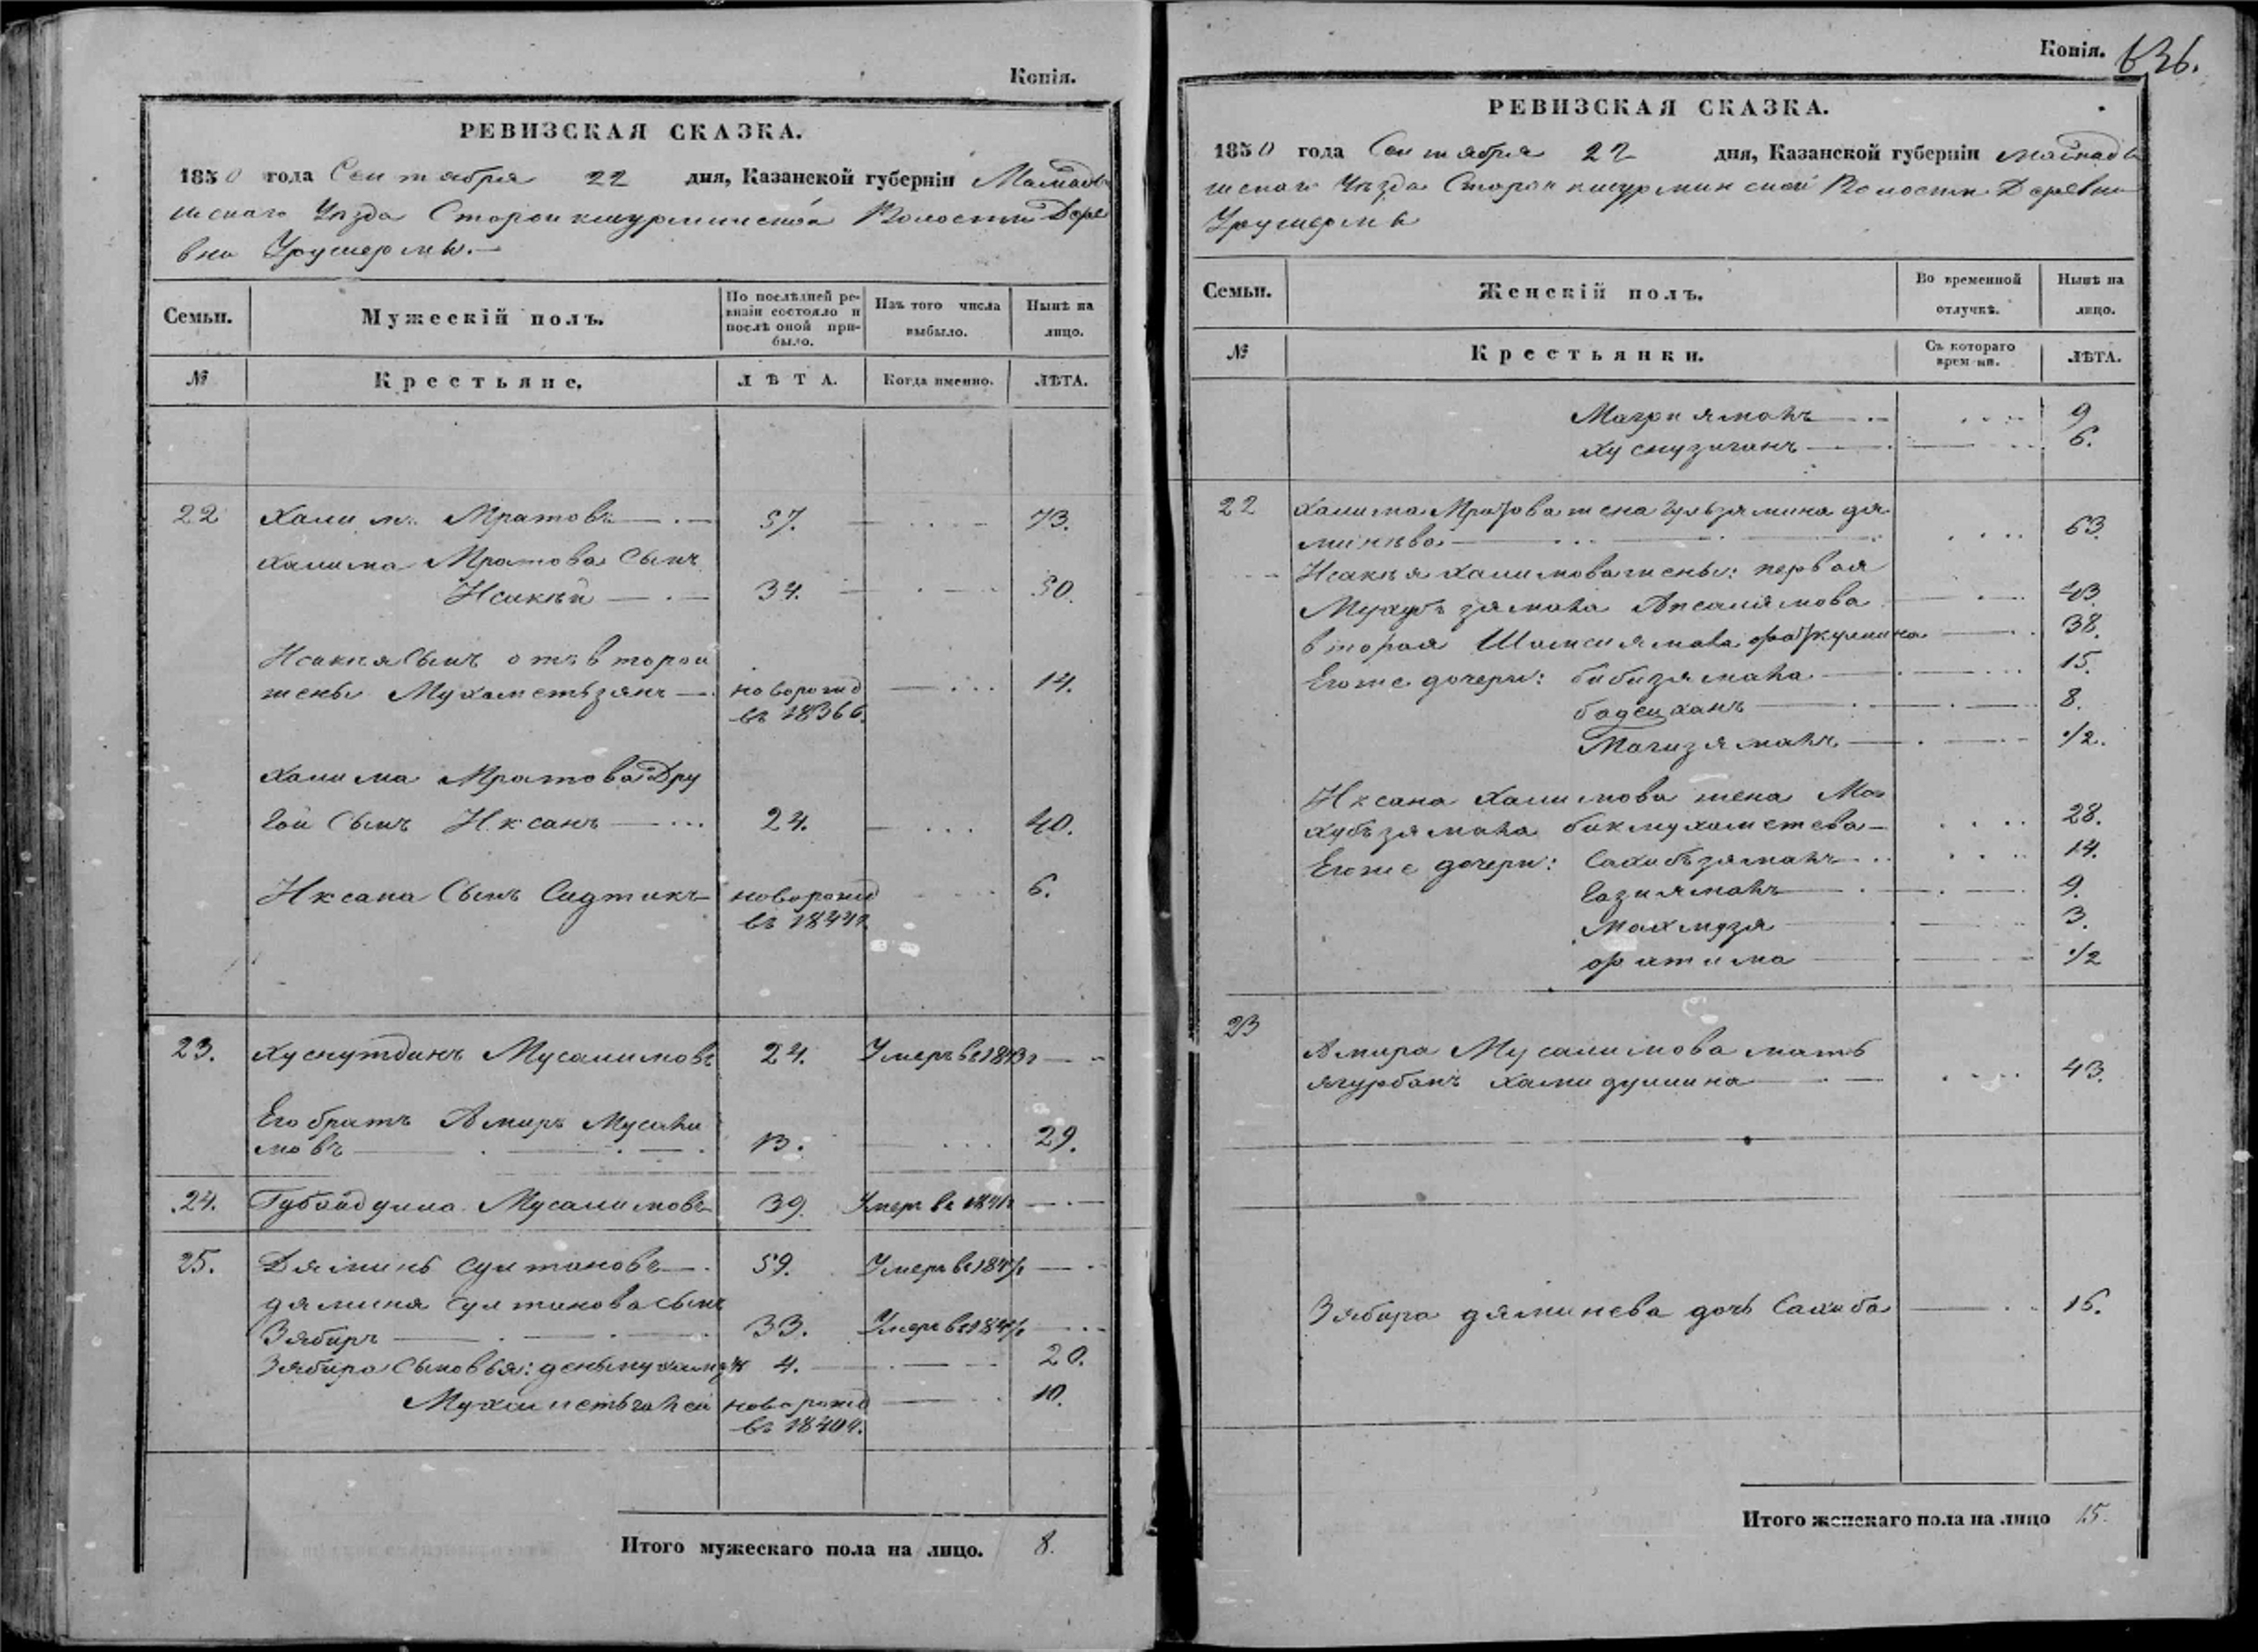 Копія.
РЕВИЗСКАЯ СКАЗКА.
1850 года Сентября 22 дня, Казанской губерніи Мамады
шскаго Уѣзда Старокшурминской Волости Дере
вни Урушермы.
Семьи. Мужескій полъ. По послѣдней ре-
визіи состояло и
послѣ оной при-
было. Изъ того числа
выбыло. Нынѣ на
лицо.
№ Крестьяне. ЛѢТА. Когда именно. ЛѢТА.
22 Халимъ Мратовъ 57. 73.
Халима Мратова Сынъ
Исакѣй 34. 50.
Исакѣя Сынъ отъ второй
жены Мухаметьзянъ новорожд 14.
въ 1836 г.
Халима Мратова Дру
гой Сынъ Иксанъ 24. 40.
Иксана Сынъ Сидтикъ новорожд 6.
въ 1844 г.
23. Хуснутдинъ Мусалимовъ 24. Умеръ въ 1843 г
Его братъ Амиръ Мусали
мовъ 13. 29.
24. Губайдулла Мусалимовъ 39. Умеръ въ
25. Дяминъ Султановъ 59. Умеръ въ
дямина Султанова сынъ
Зябиръ 33. Умеръ въ
Зябира Сыновья: 4. 20.
Мухаметьгалей новорожд 10.
въ 1840 г.
Итого мужескаго пола на лицо. 8.
Копія. 636.
РЕВИЗСКАЯ СКАЗКА.
1850 года Сентября 22 дня, Казанской губерніи Мамады
шскаго Уѣзда Старокшурминской Волости Деревни
Урушермы
Семьи. Женскій полъ. Во временной
отлучкѣ. Нынѣ на
лицо.
№ Крестьянки. Съ котораго
времени. ЛѢТА.
Магриямалъ 9
Хуснузиганъ 6.
22 Халима Мратова жена Гульзямина дя
минѣва 63
Исакѣя Халимова жены: первая
Мухубъзямала Апсалямова 43.
вторая Шамсиямала 38.
Егоже дочери: бибизямала 15.
бадеиханъ 8.
Магизямалъ 1/2.
Иксана Халимова жена Ма
хубъзямала бикмухаметева 28.
Егоже дочери: Сахибъзямалъ 14.
Газиямалъ 9.
Махмузя 3.
фатима 1/2
23
Амира Мусалимова мать
Ягурбанъ Хамидуллина 43.
Зябира дяминева дочь Сахиба 16.
Итого женскаго пола на лицо 15.